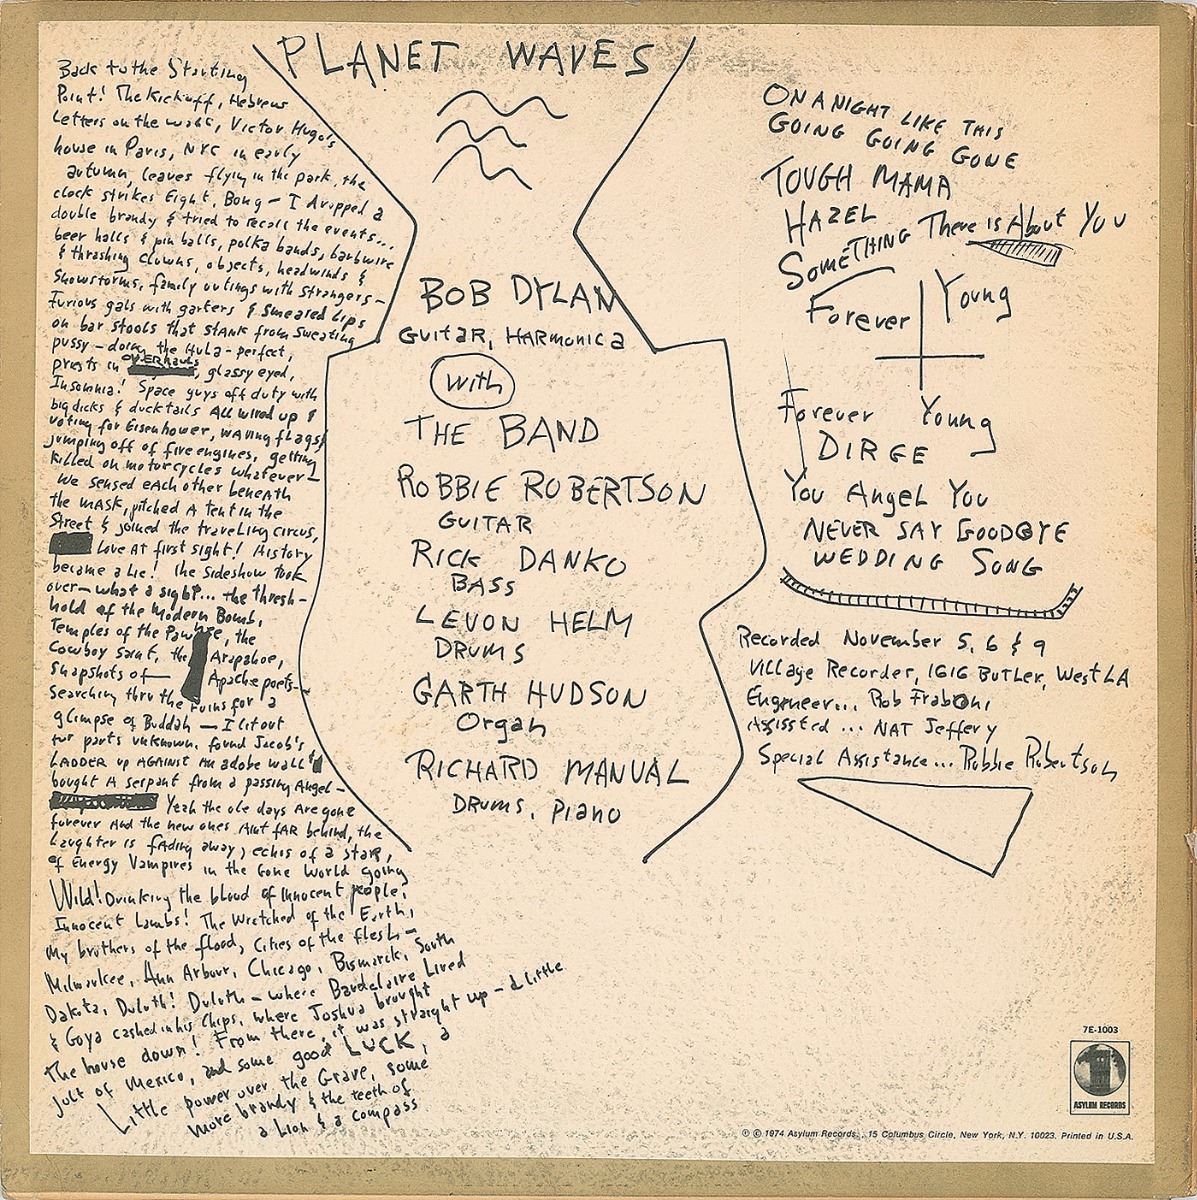 PLANET WAVES
Back to the Starting
Point! The Kickoff, Hebrew
Letters on the wall, Victor Hugo's
house in Paris, NYC in early
autumn, leaves flying in the park, the
clock strikes Eight, Bong - I dropped a
double brandy & tried to recall the events...
beer halls & pin balls, polka bands, barbwire
& thrashing clowns, objects, headwinds &
snowstorms, family outings with strangers -
Furious gals with garters & smeared lips
on bar stools that stank from sweating
pussy - doing the Hula - perfect,
priests in overhauls, glassy eyed,
Insomnia! Space guys off duty with
big dicks & ducktails All wired up &
voting for Eisenhower, waving flags &
jumping off of fire engines, getting
killed on motorcycles whatever -
We sensed each other beneath
the mask, pitched a tent in the
Street & joined the traveling circus,
Love at first sight! History
became a lie! the sideshow took
over - what a sight... the thresh-
hold of the Modern Bomb,
Temples of the Pawnee, the
Cowboy Saint, the Arapahoe,
Snapshots of Apache poets -
searching thru the ruins for a
glimpse of Buddah - I lit out
for parts unknown, found Jacob's
LADDER up AGAINST an adobe wall &
bought A serpant from a passing Angel -
Yeah the ole days Are gone
forever And the new ones Aint fAR behind, the
Laughter is fAding away, echos of a star,
of Energy Vampires in the Gone World going
Wild! Drinking the blood of innocent people,
Innocent Lambs! The Wretched of the Earth,
My brothers of the flood, Cities of the flesh -
Milwaukee, Ann Arbour, Chicago, Bismarck, South
Dakota, Duluth! Duluth - where Baudelaire Lived
& Goya cashed in his Chips, where Joshua brought
the house down! From there, it was straight up - a little
jolt of Mexico, and some good LUCK, a
Little power over the Grave, some
more brandy & the teeth of
a Lion & a compass
BOB DYLAN
GUITAR, HARMONICA
With
THE BAND
ROBBIE ROBERTSON
GUITAR
RICK DANKO
BASS
LEVON HELM
DRUMS
GARTH HUDSON
Organ
RICHARD MANUAL
DRUMS, Piano
ON A NIGHT LIKE THIS
GOING GOING GONE
TOUGH MAMA
HAZEL
SOMETHING There is About You
Forever Young
Forever Young
DIRGE
You Angel You
NEVER SAY GOODBYE
WEDDING SONG
Recorded November 5, 6 & 9
Village Recorder, 1616 BUTLER, West LA
Engineer... Rob Fraboni
Assissted ... NAT Jeffery
Special Assistance... Robbie Robertson
7E-1003
ASYLUM RECORDS
℗ © 1974 Asylum Records, 15 Columbus Circle, New York, N.Y. 10023. Printed in U.S.A.